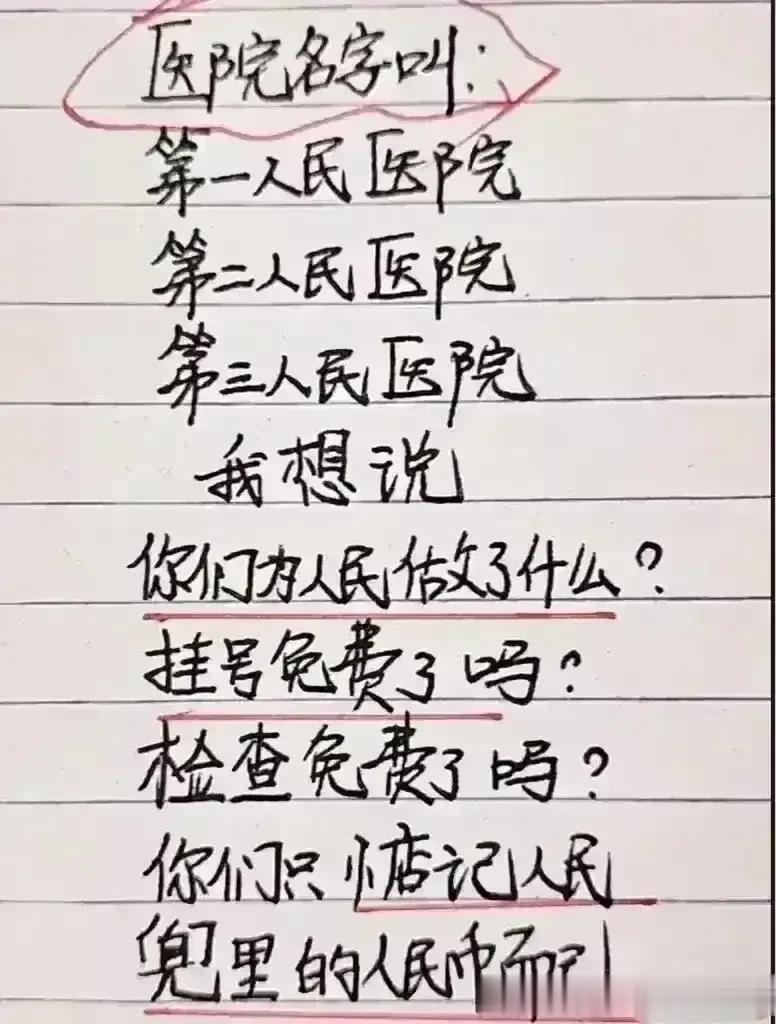 医院名字叫:
第一人民医院
第二人民医院
第三人民医院
我想说
你们为人民做了什么?
挂号免费了吗?
检查免费了吗?
你们只惦记人民
兜里的人民币而已